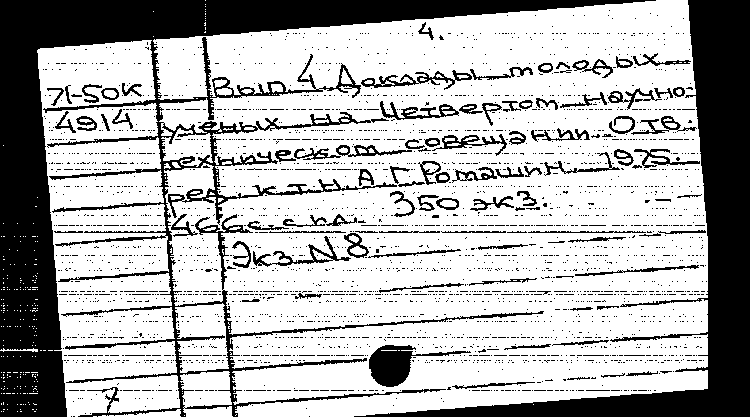 4.
71-50к
4914
Вып. 4. Доклады молодых
ученых на Четвертом научно-
техническом совещании. Отв.
ред. к.т.н. А.Г. Ромашин. 1975.
466с. с ил. 350 экз.
Экз. N.8.